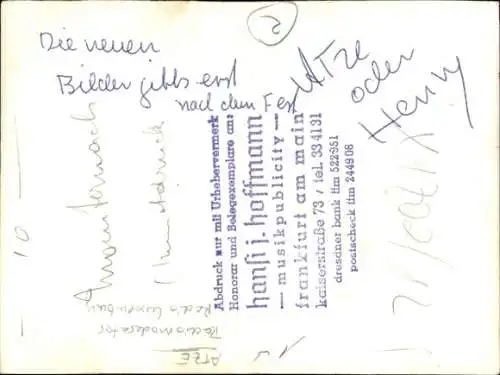 2
Die neuen
Bilder gibts erst
nach dem Fest
Atze
oder
Henry
Abdruck nur mit Urhebervermerk
Honorar und Belegexemplare an:
hansi j. hoffmann
— musikpublicity —
frankfurt am main
kaiserstraße 73 / tel. 33 41 31
dresdner bank ffm 522351
postscheck ffm 244908
10
Radio Luxemburg
Radiomoderator
ATZE